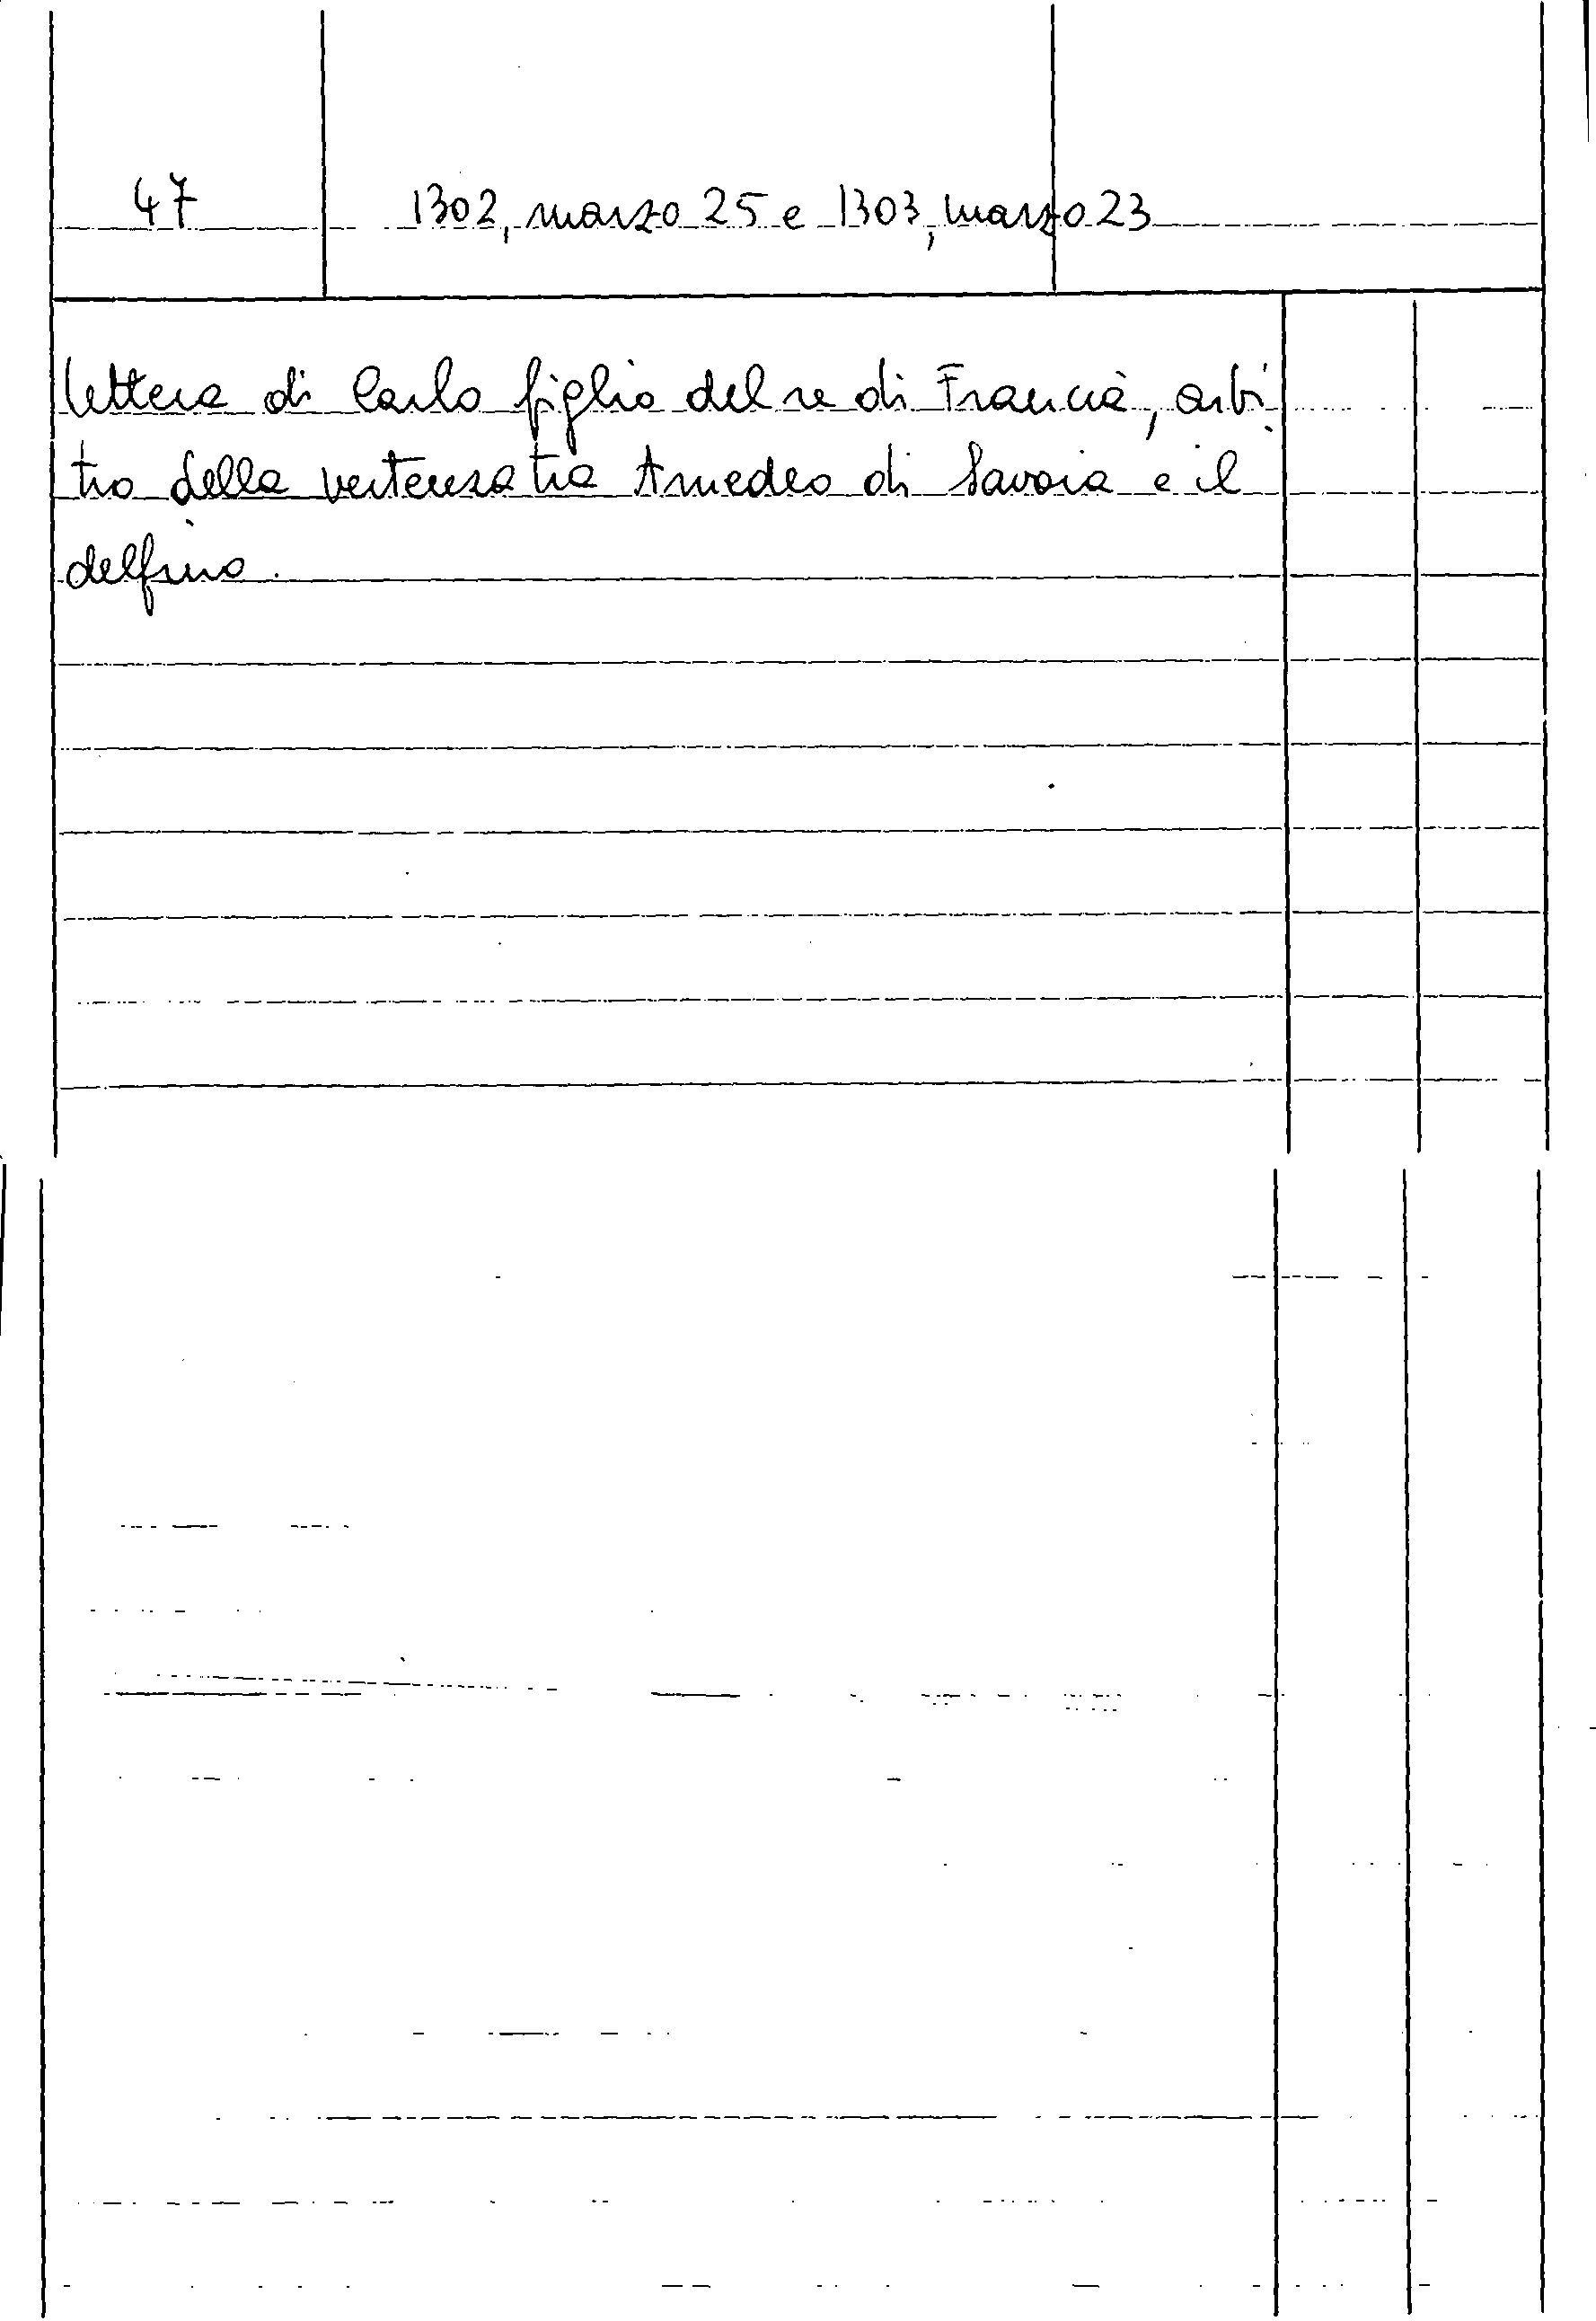 47 1302, marzo 25 e 1303, marzo 23
Lettera di Carlo figlio del re di Francia, arbi
tro della vertenza tra Amedeo di Savoia e il
delfino.